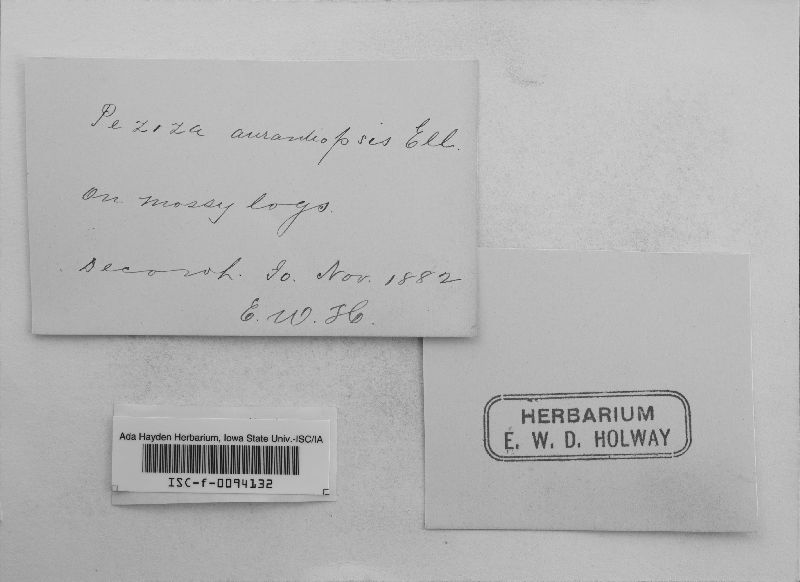 Peziza aurantiopsis Ell.
on mossy logs.
Decorah. Io. Nov. 1882
E. W. H.
HERBARIUM
E. W. D. HOLWAY
Ada Hayden Herbarium, Iowa State Univ.-ISC/IA
ISC-f-0094132